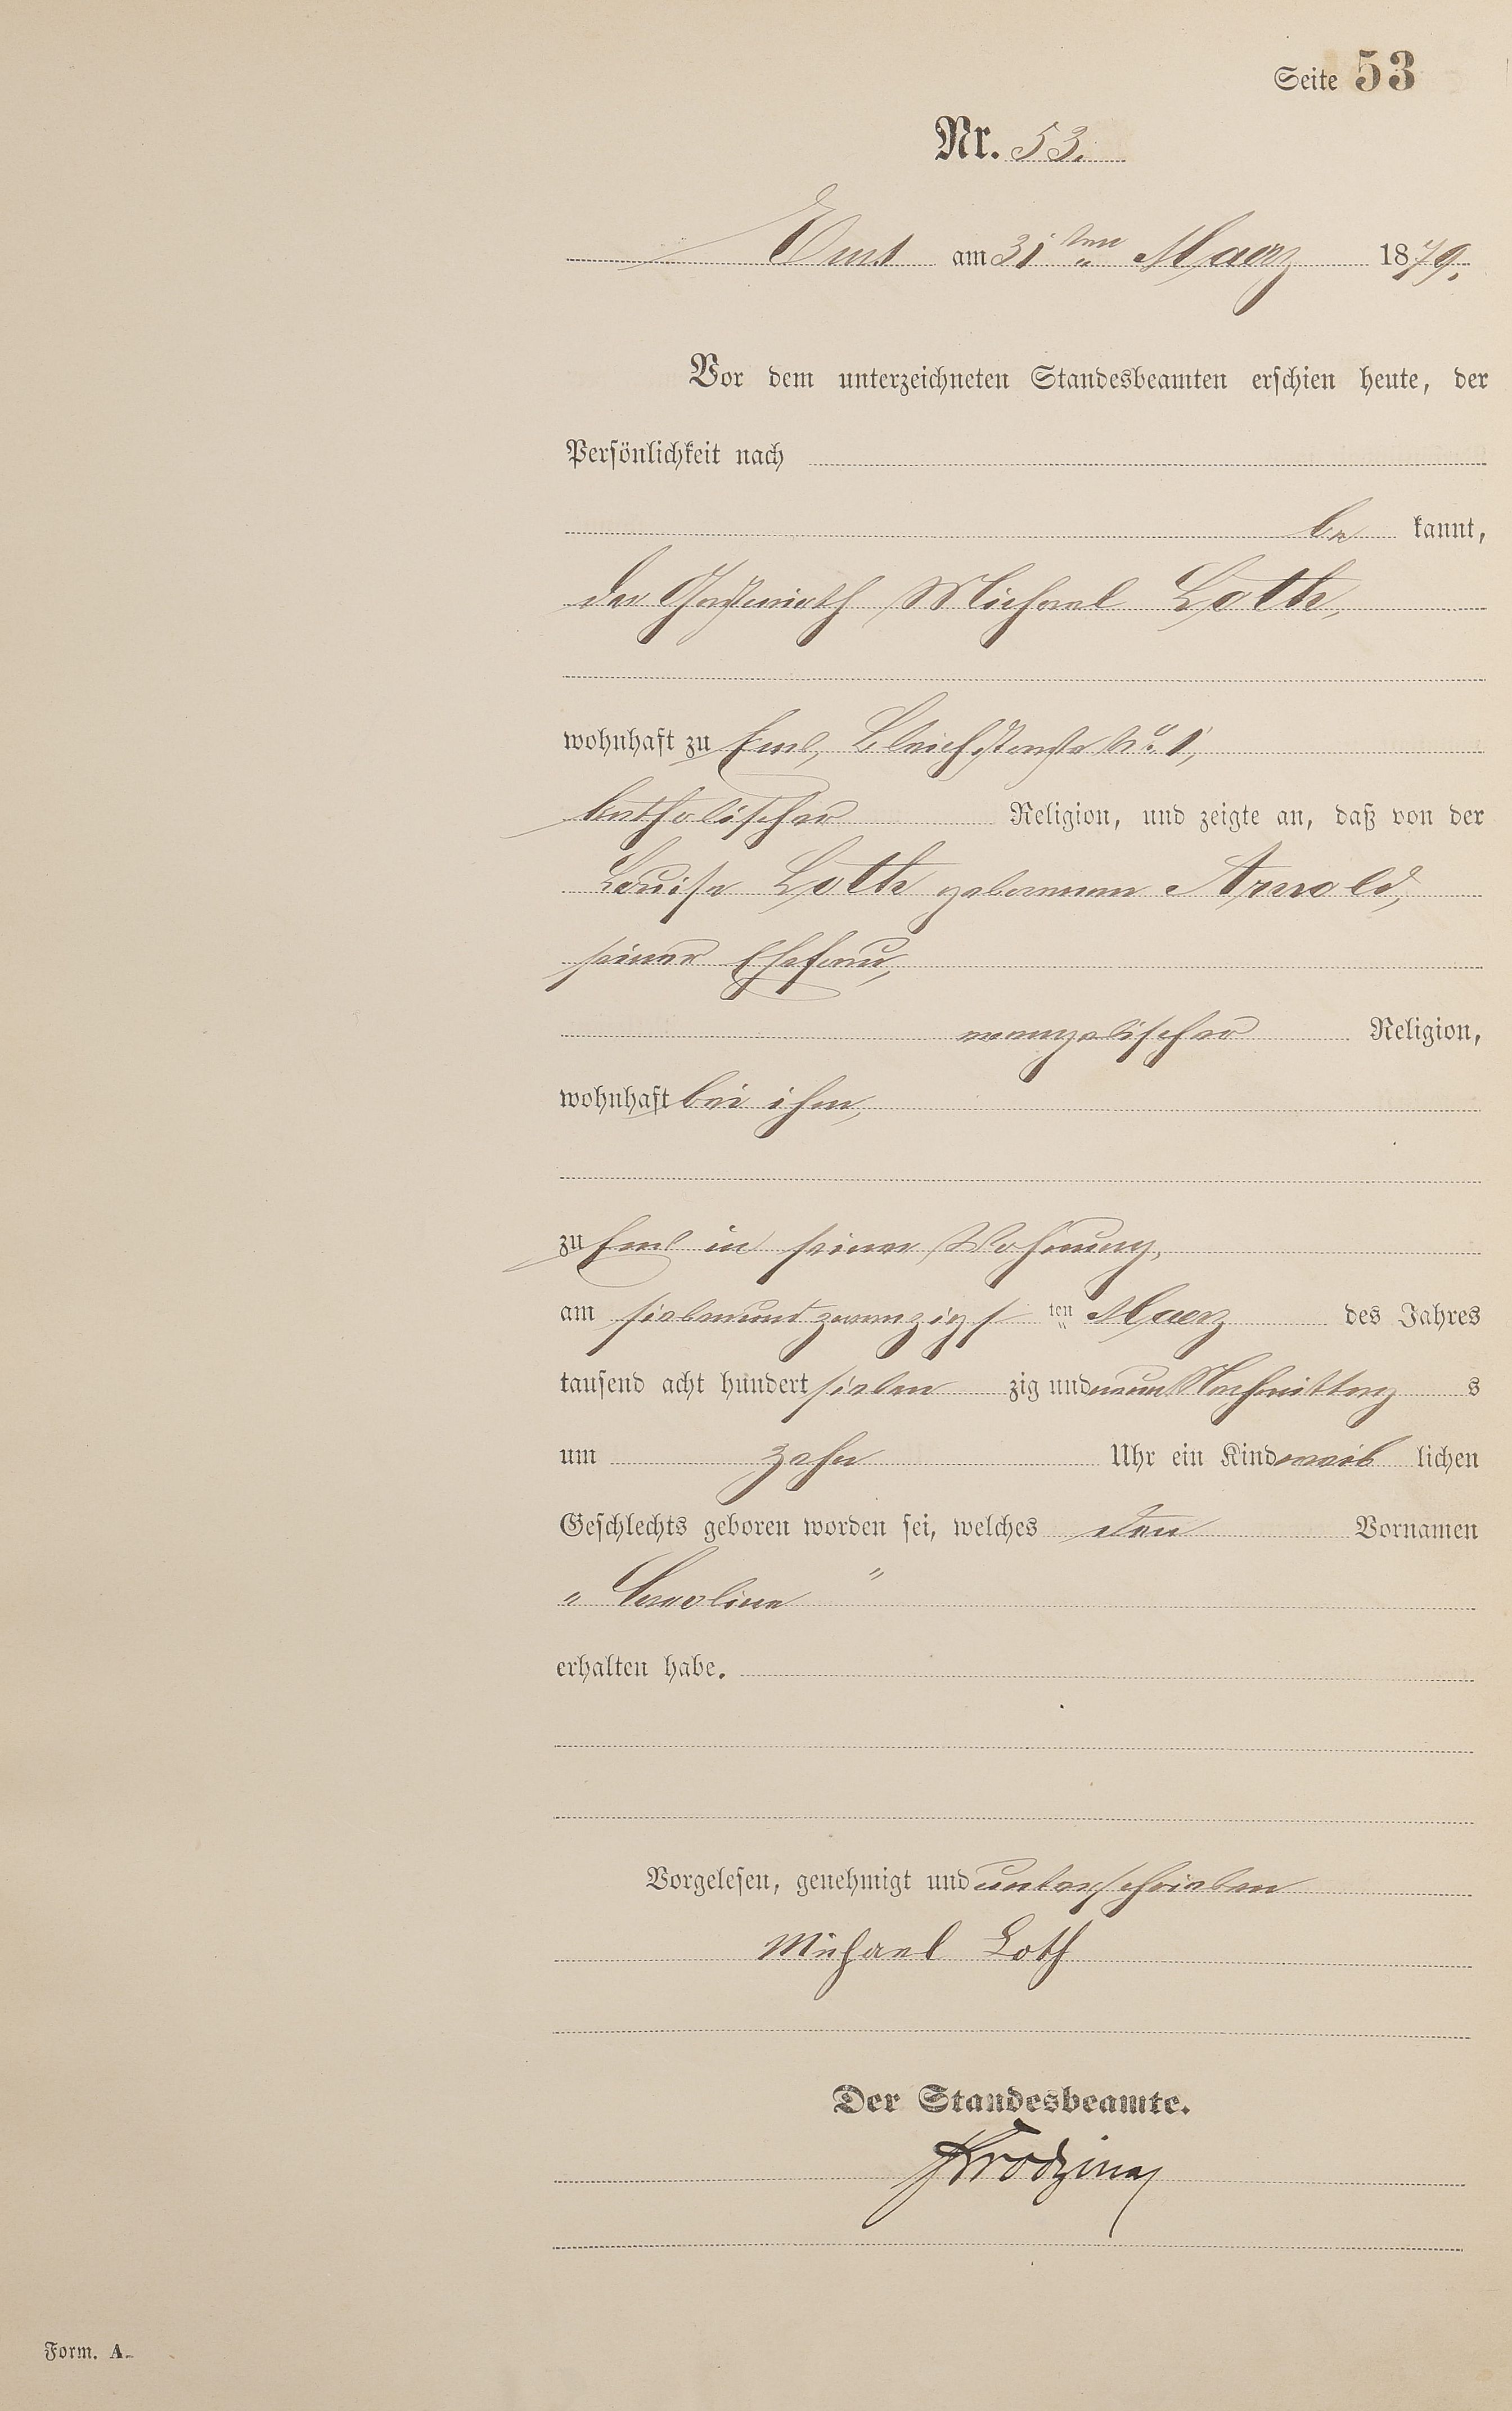 Seite 53
Nr. 53.
Ems am 31ten März 1879.
Vor dem unterzeichneten Standesbeamten erschien heute, der
Persönlichkeit nach
be kannt,
der Gastwirth Michael Loth,
wohnhaft zu Ems, Bleichstraße No. 1,
katholischer Religion, und zeigte an, daß von der
Louise Loth geborenen Arnold,
seiner Ehefrau,
evangelischer Religion,
wohnhaft bei ihm,
zu Ems in seiner Wohnung,
am siebenundzwanzigs ten März des Jahres
tausend acht hundert sieben zig und neun Nachmittag s
um zehn Uhr ein Kind weib lichen
Geschlechts geboren worden sei, welches den Vornamen
" Caroline "
erhalten habe.
Vorgelesen, genehmigt und unterschrieben
Michael Loth
Der Standesbeamte.
Form. A.